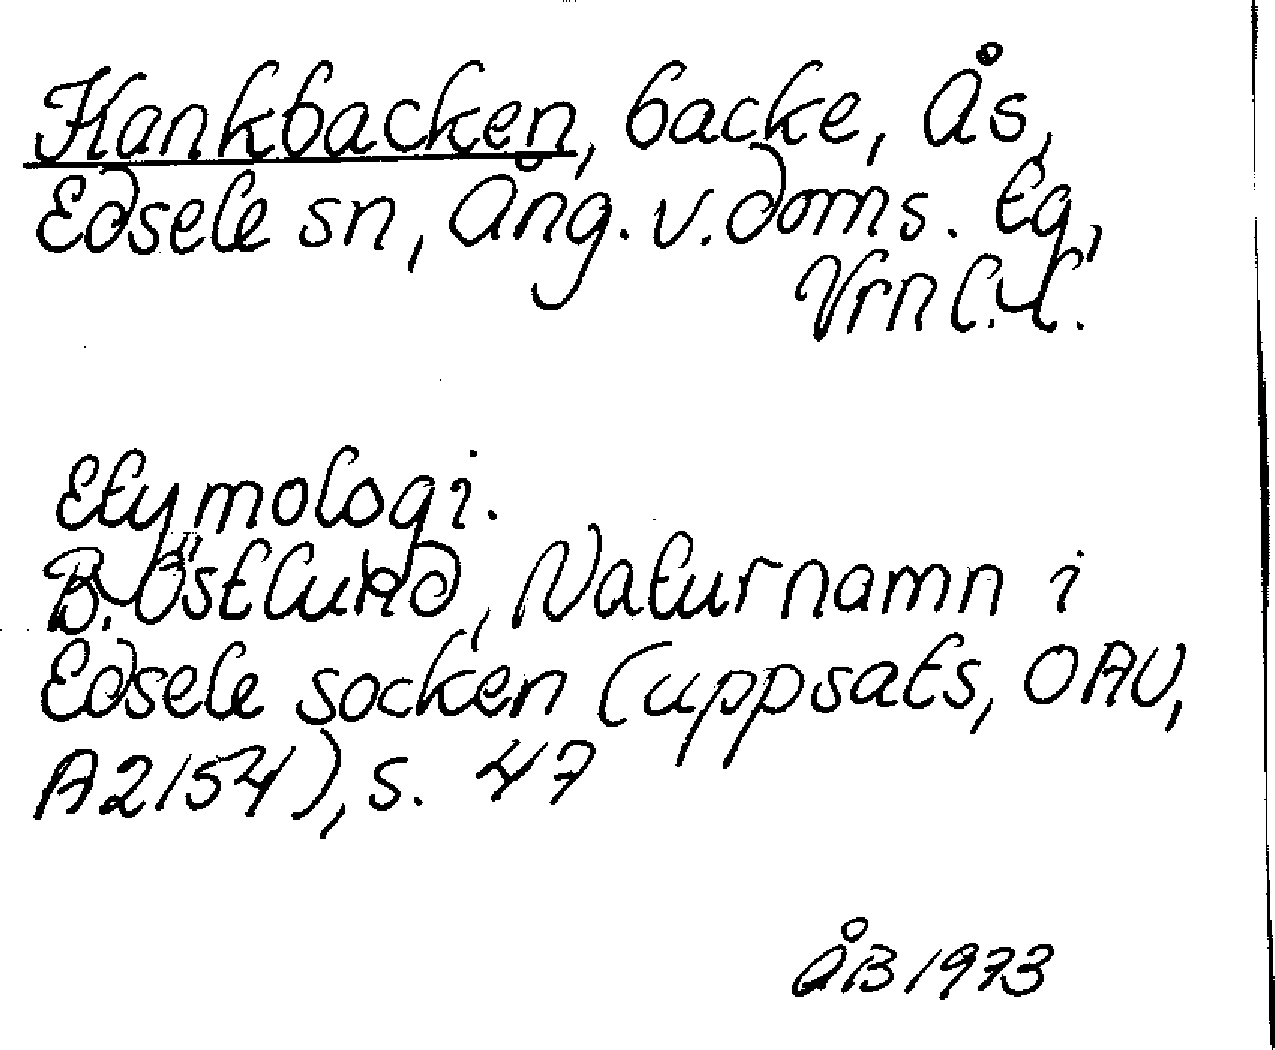 Hankbacken, backe, ås,
Edsele sn, Ång. v. doms. tg,
Vrnl. l.
Etymologi.
B. Östlund, Naturnamn i
Edsele socken (uppsats, OAU,
A2154), s. 47
ÅB 1973